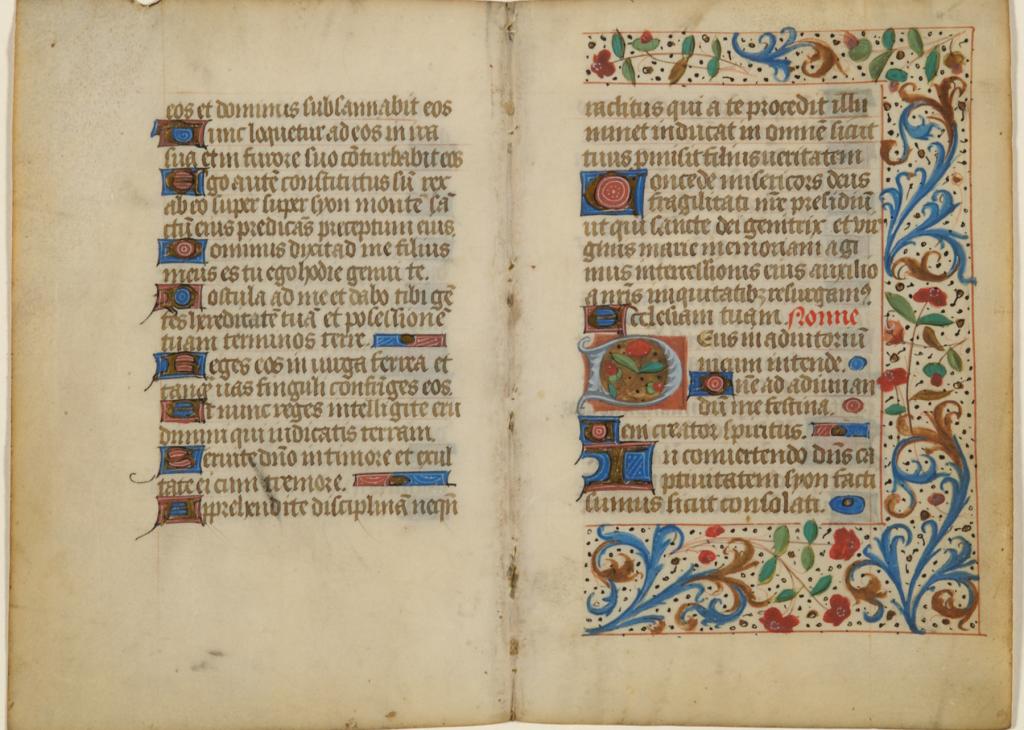 eos et dominus subsannabit eos
Tunc loquetur ad eos in ira
sua et in furore suo cõturbabit eos
Ego autẽ constitutus sũ rex
ab eo super super syon montẽ sã
ctũ eius predicãs preceptum eius.
Dominus dixit ad me filius
meus es tu ego hodie genui te.
Postula ad me et dabo tibi gẽ
tes hereditatẽ tuã et possessionẽ
tuam terminos terre.
Reges eos in uirga ferrea et
tanq̃ uas finguli confriges eos.
Et nunc reges intelligite eru
dimini qui iudicatis terram.
Seruite dño in timore et exul
tate ei cum tremore.
Apprehendite disciplinã neqñ
raclitus qui a te procedit illu
minet inducat in omnẽ sicut
tuus p̃misit filius ueritatem
Concede misericors deus
fragilitati nr̃e presidiũ
ut qui sancte dei genitrix et uir
ginis marie memoriam agi
mus intercessionis eius auxilio
a nr̃is iniquitatibꝫ resurgamꝰ.
Ecclesiam tuam. Nonne
Deus in adiutoriũ
meum intende.
Dñe ad adiuuan
dũ me festina.
Uem creator spiritus.
In conuertendo dñs ca
ptiuitatem syon facti
sumus sicut consolati.